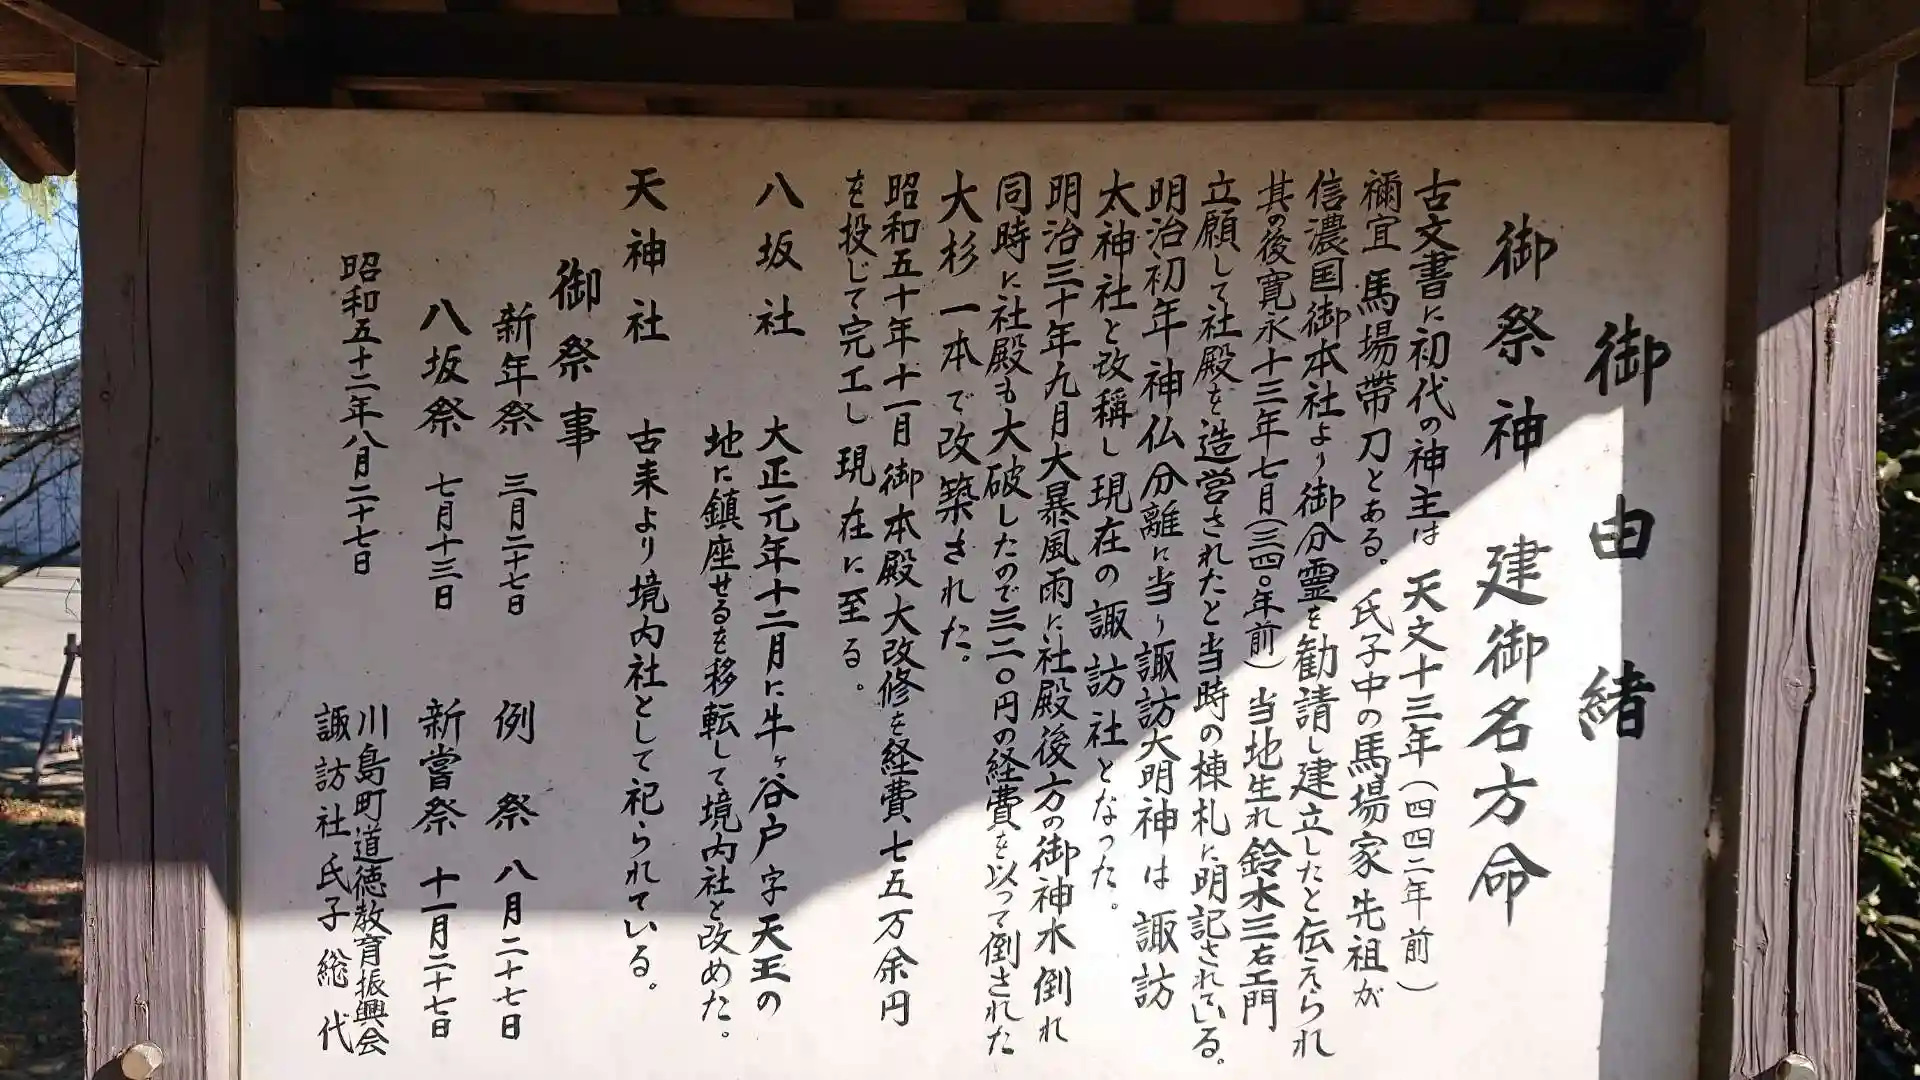 御由緒
御祭神 建御名方命
古文書に初代の神主は 天文十三年（四四二年前）
禰宜 馬場帯刀とある。氏子中の馬場家先祖が
信濃国御本社より御分霊を勧請し建立したと伝えられ
其の後寛永十三年七月（三四〇年前）当地生れ鈴木三右エ門
立願して社殿を造営されたと当時の棟札に明記されている。
明治初年 神仏分離に当り諏訪大明神は諏訪
太神社と改稱し現在の諏訪社となった。
明治三十年九月大暴風雨に社殿後方の御神水倒れ
同時に社殿も大破したので三二〇円の経費を以って倒された
大杉一本で改築された。
昭和五十年十一月御本殿大改修を経費七五万余円
を投じて完工し現在に至る。
八坂社 大正元年十二月に牛ヶ谷戸字天王の
地に鎮座せるを移転して境内社と改めた。
天神社 古来より境内社として祀られている。
御祭事
新年祭 三月二十七日 例祭 八月二十七日
八坂祭 七月十三日 新嘗祭 十一月二十七日
昭和五十二年八月二十七日
川島町道徳教育振興会
諏訪社氏子総代